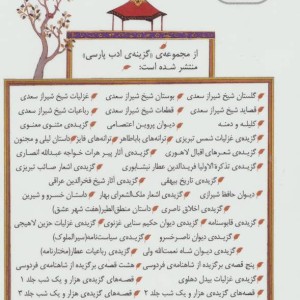 از مجموعه‌ی «گزینه‌ی ادب پارسی»
منتشر شده است:
گلستان شیخ شیراز سعدی بوستان شیخ شیراز سعدی غزلیات شیخ شیراز سعدی
قصاید شیخ شیراز سعدی قطعات شیخ شیراز سعدی رباعیات شیخ شیراز سعدی
کلیله و دمنه دیـوان پرویـن اعتصامی گزیده‌ی مثنوی معنوی
گزیده‌ی غزلیات شمس تبریزی ترانه‌های باباطاهر ترانه‌های فایز داستان لیلی و مجنون
گزیده‌ی شعرهای اقبال لاهوری گزیده‌ی آثار پیر هرات خواجه عبدالله انصاری
گزیده‌ی تذکرةالاولیا فریدالدین عطار نیشابوری گزیده‌ی اشعار صائب تبریزی
گزیده‌ی تاریخ بیهقی گزیده‌ی آثار شیخ فخرالدین عراقی
دیوان حافظ شیرازی گزیده‌ی اشعار ملک‌الشعرای بهار داستان خسرو و شیرین
گزیده‌ی اخلاق ناصری داستان منطق‌الطیر(هفت شهر عشق)
گزیده‌ی قابوسنامه گزیده‌ی دیوان حکیم سنایی غزنوی گزیده‌ی غزلیات حزین لاهیجی
گزیـده‌ی دیـوان ناصرخسـرو گزیـده‌ی سیاست‌نامه(سیرالملوک)
گزیده‌ی دیوان شاه نعمت‌الله ولی گزیده‌ی رباعیات عطار(مختارنامه)
پنج قصه‌ی برگزیده از شاهنامه‌ی فردوسی هشت قصه‌ی برگزیده از شاهنامه‌ی فردوسی
گزیده‌ی غزلیات بیدل دهلوی قصه‌های گزیده‌ی هزار و یک شب جلد ۱
قصه‌های گزیده‌ی هزار و یک شب جلد ۲ قصه‌های گزیده‌ی هزار و یک شب جلد ۳